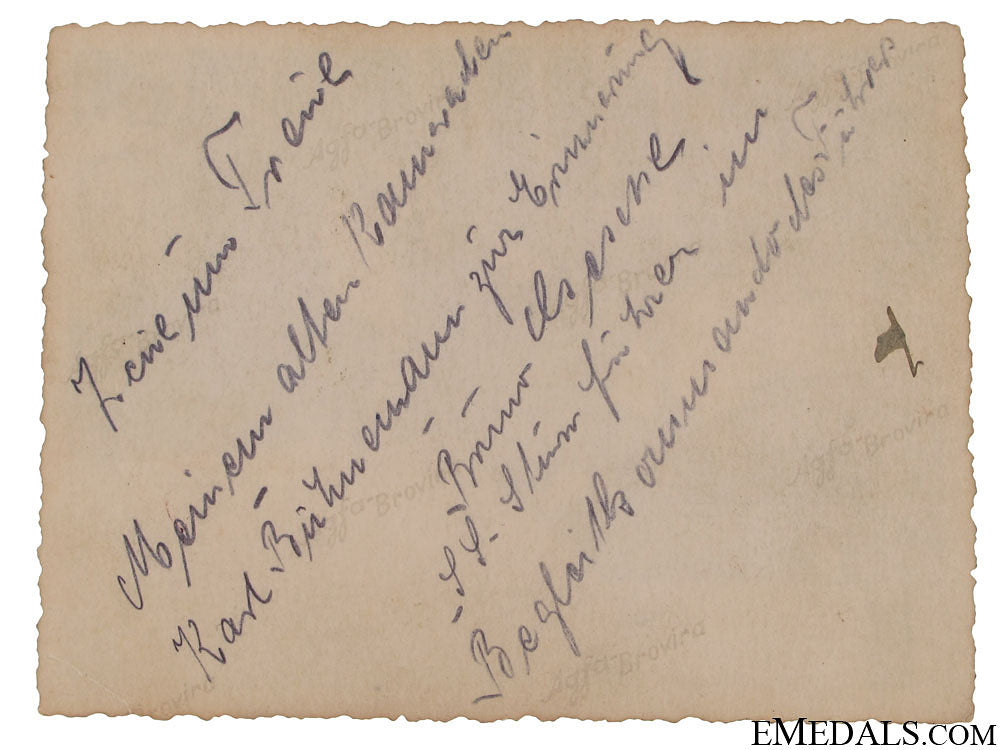 Treue um Treue
Meinem alten Kameraden
Karl Bühmemann zur Erinnerung
Bruno
S.S. Sturmführer im
Begleitkommando des Führer
Agfa-Brovira
Agfa-Brovira
Agfa-Brovira
Agfa-Brovira
EMEDALS.COM